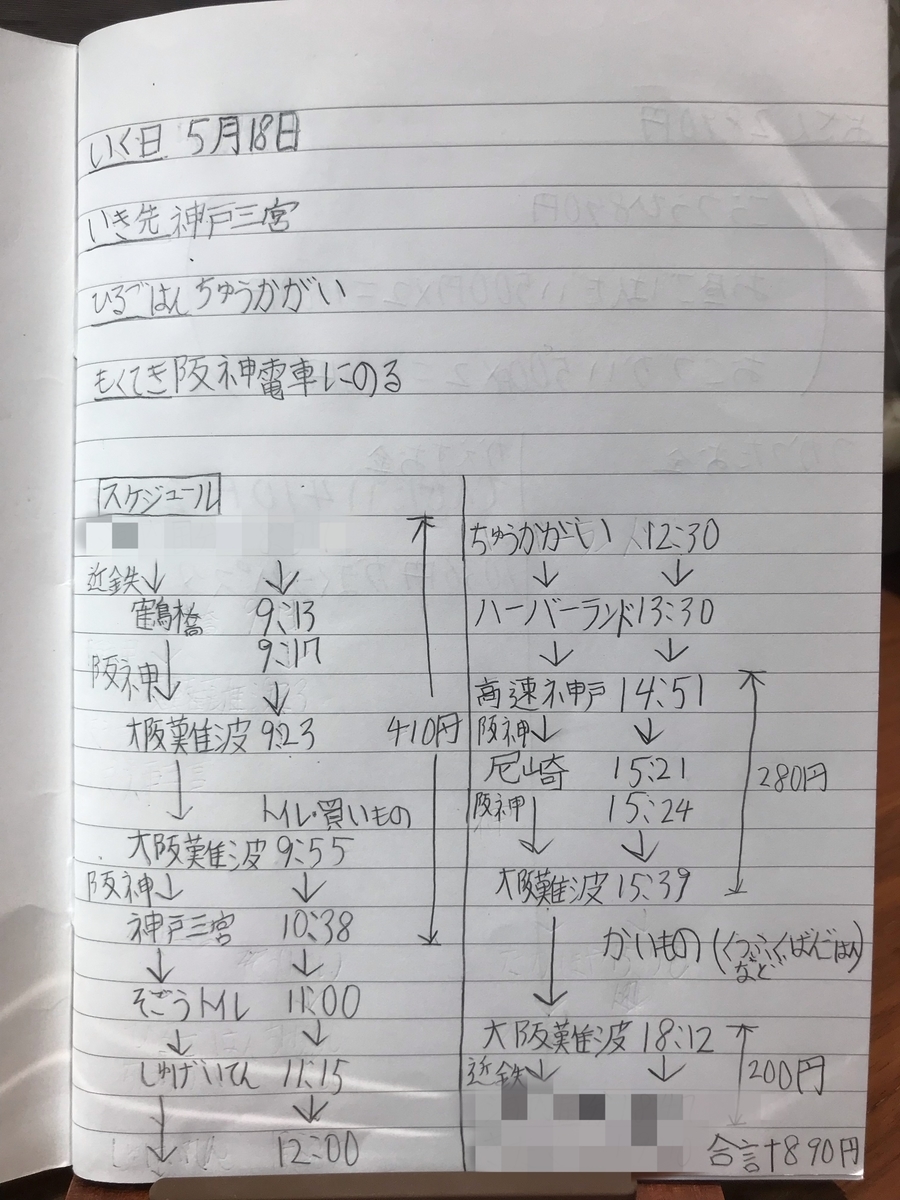 いく日 5月18日
いき先 神戸三宮
ひるごはん ちゅうかがい
もくてき 阪神電車にのる
スケジュール
近鉄↓ ↓
鶴橋 9:13
9:17
阪神↓ ↓
大阪難波 9:23
410円
↓ トイレ・買いもの
大阪難波 9:55
阪神↓ ↓
神戸三宮 10:38
↓ ↓
そごうトイレ 11:00
↓ ↓
しゅげいてん 11:15
↓ ↓
12:00
ちゅうかがい 12:30
↓ ↓
ハーバーランド 13:30
↓ ↓
高速神戸 14:51
阪神↓ ↓
尼崎 15:21
280円
阪神↓ 15:24
↓
大阪難波 15:39
↓ かいもの (くつ、ふくばんごはん
など)
大阪難波 18:12
近鉄↓ ↓ 200円
合計890円